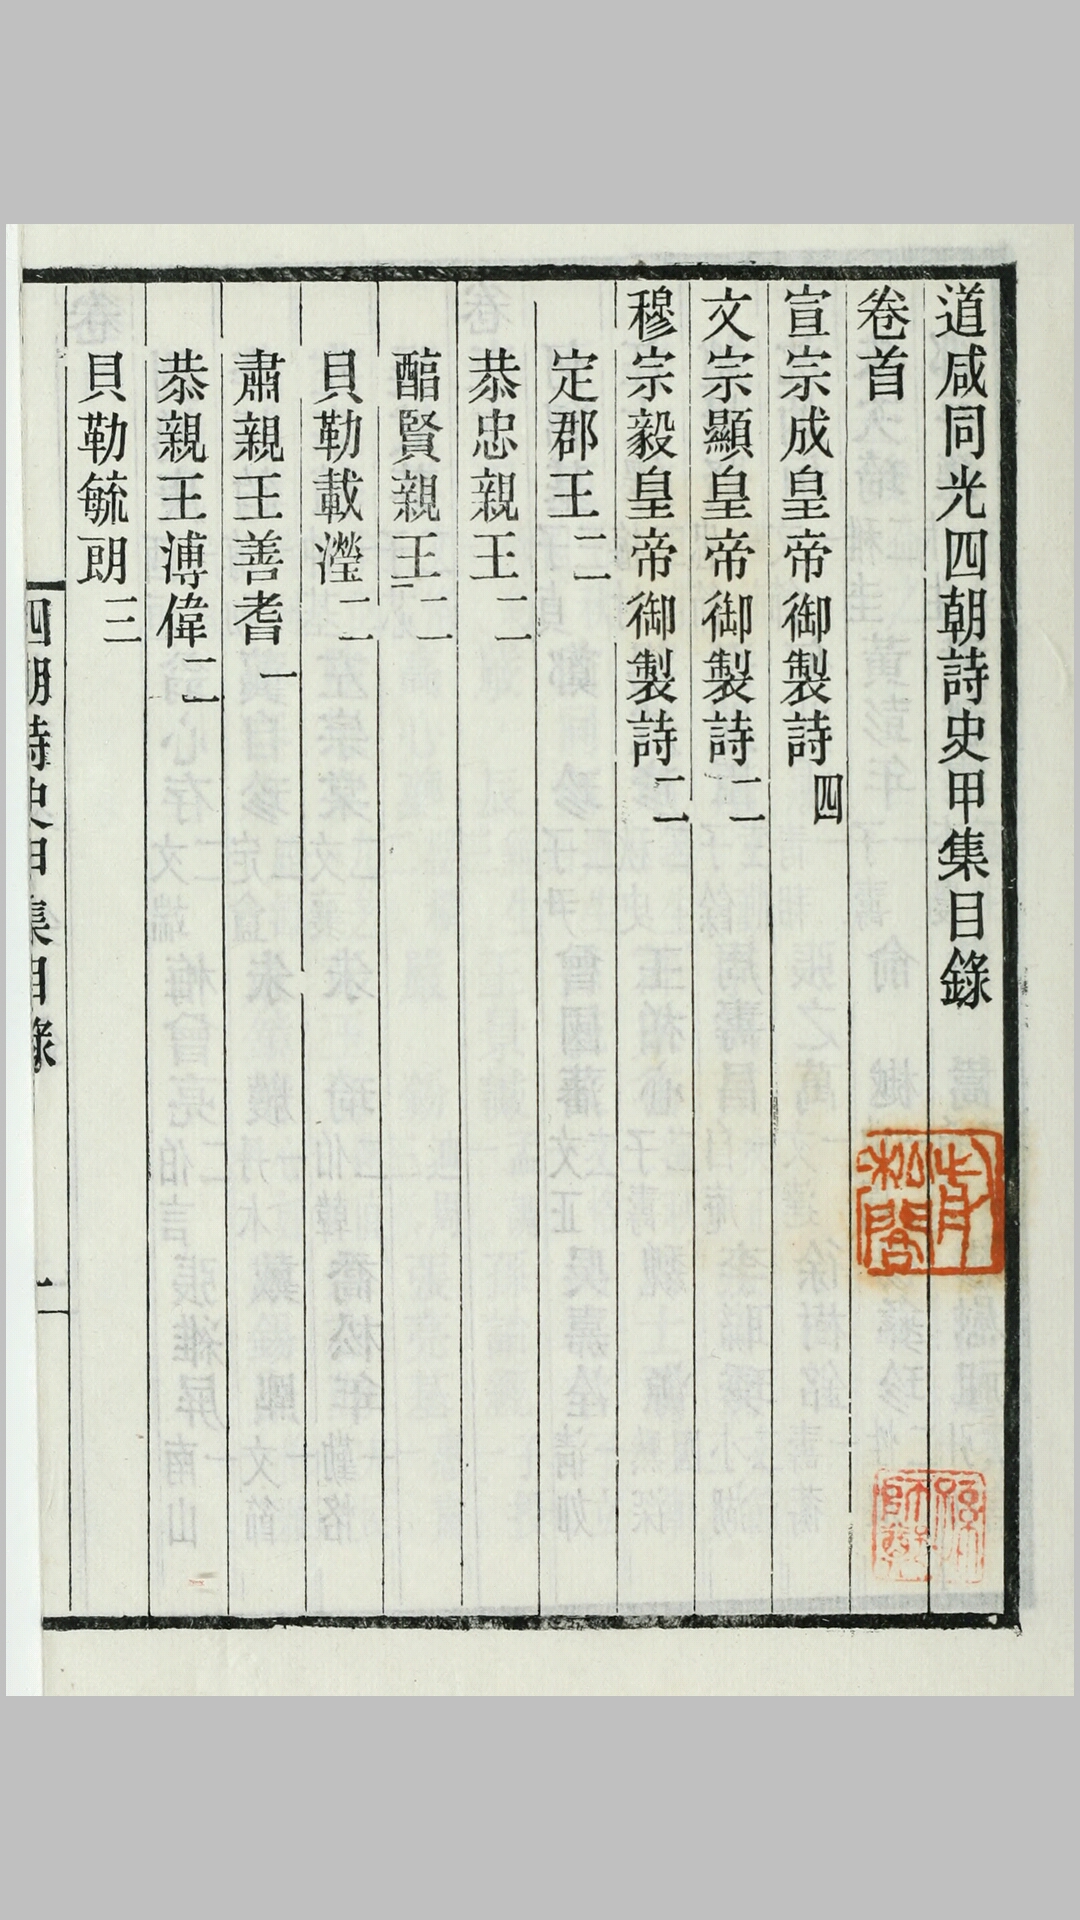 道咸同光四朝詩史甲集目錄
卷首
宣宗成皇帝御製詩四
文宗顯皇帝御製詩二
穆宗毅皇帝御製詩二
定郡王二
恭忠親王二
醇賢親王二
貝勒載瀅二
肅親王善耆一
恭親王溥偉二
貝勒毓朗三
四朝詩史甲集目錄
一